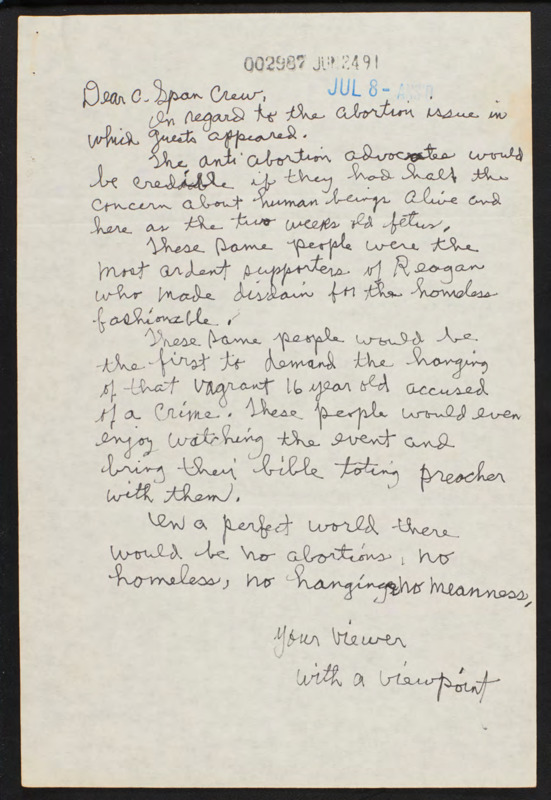 002987 JUN 24 91
JUL 8 -
Dear C. Span Crew,
In regard to the abortion issue in
which guests appeared.
The anti abortion advocates would
be credible if they had half the
concern about human beings alive and
here as the two weeks old fetus.
These same people were the
most ardent supporters of Reagan
who made disdain for the homeless
fashionable.
These same people would be
the first to demand the hanging
of that vagrant 16 year old accused
of a crime. These people would even
enjoy watching the event and
bring their bible toting preacher
with them.
In a perfect world there
would be no abortions, no
homeless, no hangings, no meanness,
your viewer
with a viewpoint